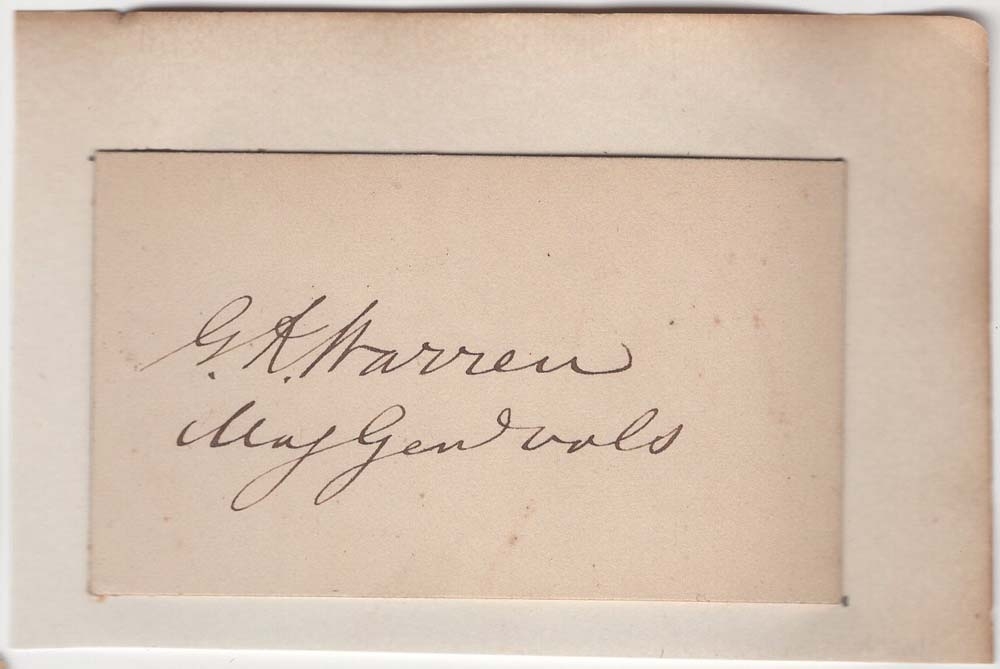 G. K. Warren
Maj Genl vols